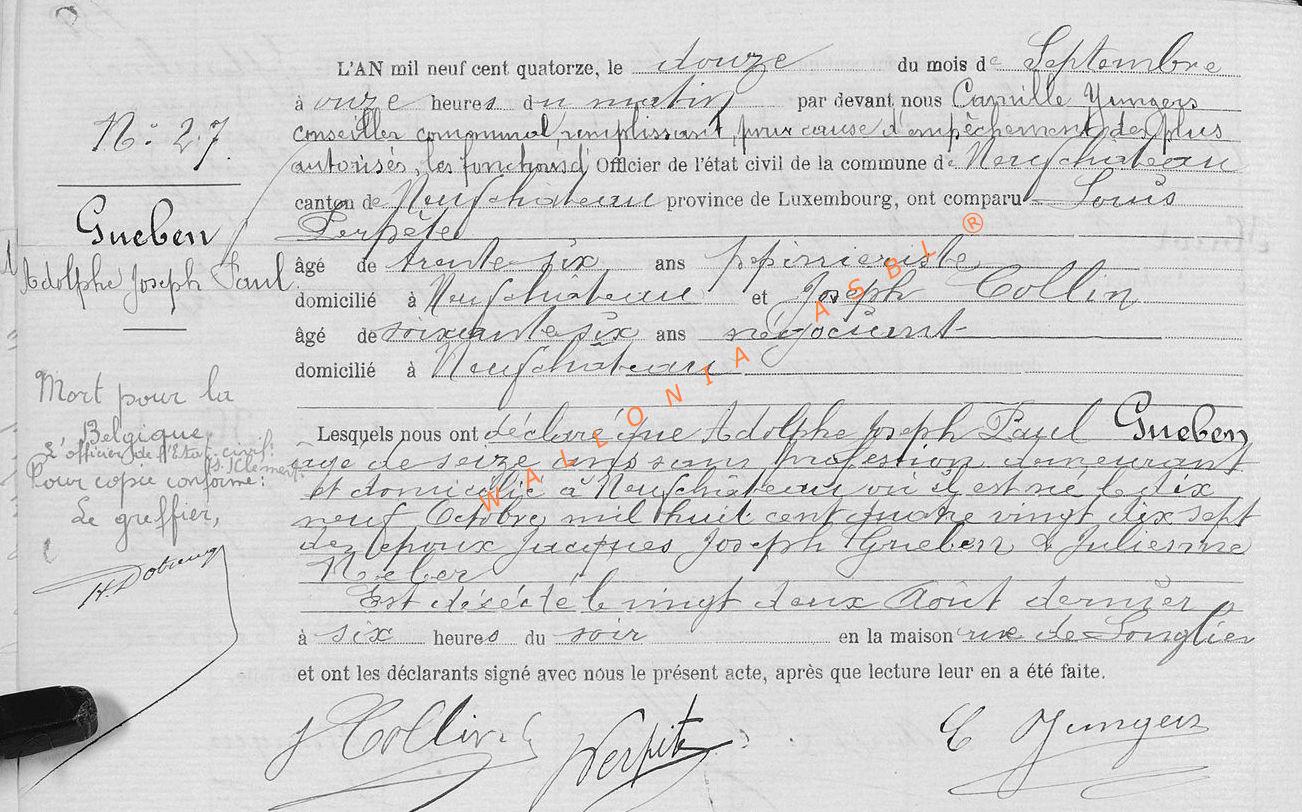 N.º 27.
Gueben
Adolphe Joseph Paul
Mort pour la
Belgique
L'officier de l'Etat-civil:
(s. Clément.
Pour copie conforme:
Le greffier,
L'AN mil neuf cent quatorze, le douze du mois de Septembre
à onze heures du matin par devant nous Camille Jungers
conseiller communal remplissant, pour cause d'empêchement des plus
autorisés, les fonctions d' Officier de l'état civil de la commune de Neufchâteau
canton de Neufchâteau province de Luxembourg, ont comparu Louis
Perpète
âgé de trente six ans pépiniériste
domicilié à Neufchâteau et Joseph Collin
âgé de soixante six ans négociant
domicilié à Neufchâteau
Lesquels nous ont déclaré que Adolphe Joseph Paul Gueben
âgé de seize ans sans profession demeurant
et domicilié à Neufchâteau où il est né le dix
neuf Octobre mil huit cent quatre vingt dix sept
des époux Jacques Joseph Gueben & Julienne
Est décédé le vingt deux Août dernier
à six heures du soir en la maison rue de Longlier
et ont les déclarants signé avec nous le présent acte, après que lecture leur en a été faite.
J Collin Perpète C Jungers
WALLONIA ASBL ®